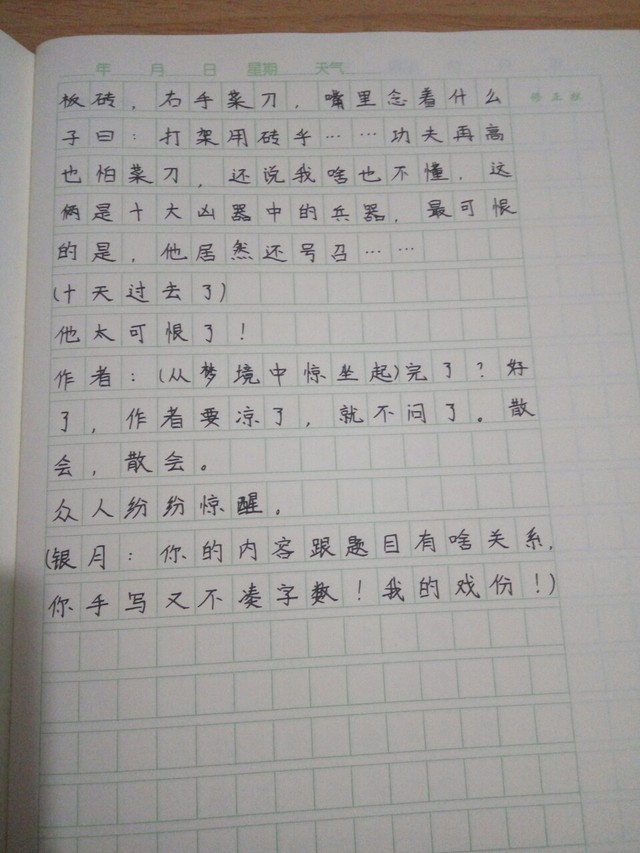 年 月 日 星期 天气
板砖，右手菜刀，嘴里念着什么
子曰：打架用砖乎……功夫再高
也怕菜刀，还说我啥也不懂．这
俩是十大凶器中的兵器，最可恨
的是，他居然还号召……
(十天过去了)
他太可恨了！
作者：(从梦境中惊坐起)完了？好
了，作者要凉了，就不问了。散
会，散会。
众人纷纷惊醒．
(银月：你的内容跟题目有啥关系，
你手写又不凑字数！我的戏份！)